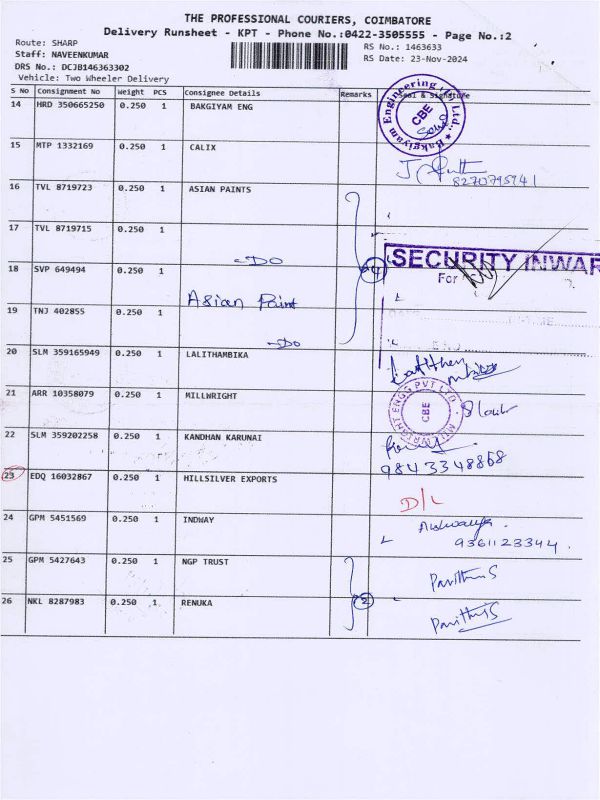 THE PROFESSIONAL COURIERS, COIMBATORE
Delivery Runsheet - KPT - Phone No.:0422-3505555 - Page No.:2
Route: SHARP
Staff: NAVEENKUMAR
DRS No.: DCJB146363302
Vehicle: Two Wheeler Delivery
RS No.: 1463633
RS Date: 23-Nov-2024
S No Consignment No Weight PCS Consignee Details Remarks Seal & Signature
14 HRD 350665250 0.250 1 BAKGIYAM ENG
Bakgiyam Engineering Pvt Ltd., CBE
15 MTP 1332169 0.250 1 CALIX
8270795941
16 TVL 8719723 0.250 1 ASIAN PAINTS
17 TVL 8719715 0.250 1
-DO
SECURITY INWAR
For
18 SVP 649494 0.250 1
Asian Paint
19 TNJ 402855 0.250 1
-DO
20 SLM 359165949 0.250 1 LALITHAMBIKA
21 ARR 10358079 0.250 1 MILLWRIGHT
MILLWRIGHT ENGG PVT LTD CBE
22 SLM 359202258 0.250 1 KANDHAN KARUNAI
9843348868
23 EDQ 16032867 0.250 1 HILLSILVER EXPORTS
D/L
24 GPM 5451569 0.250 1 INDWAY
9361123344.
25 GPM 5427643 0.250 1 NGP TRUST
Pavithra S
26 NKL 8287983 0.250 1 RENUKA
2
Pavithra S